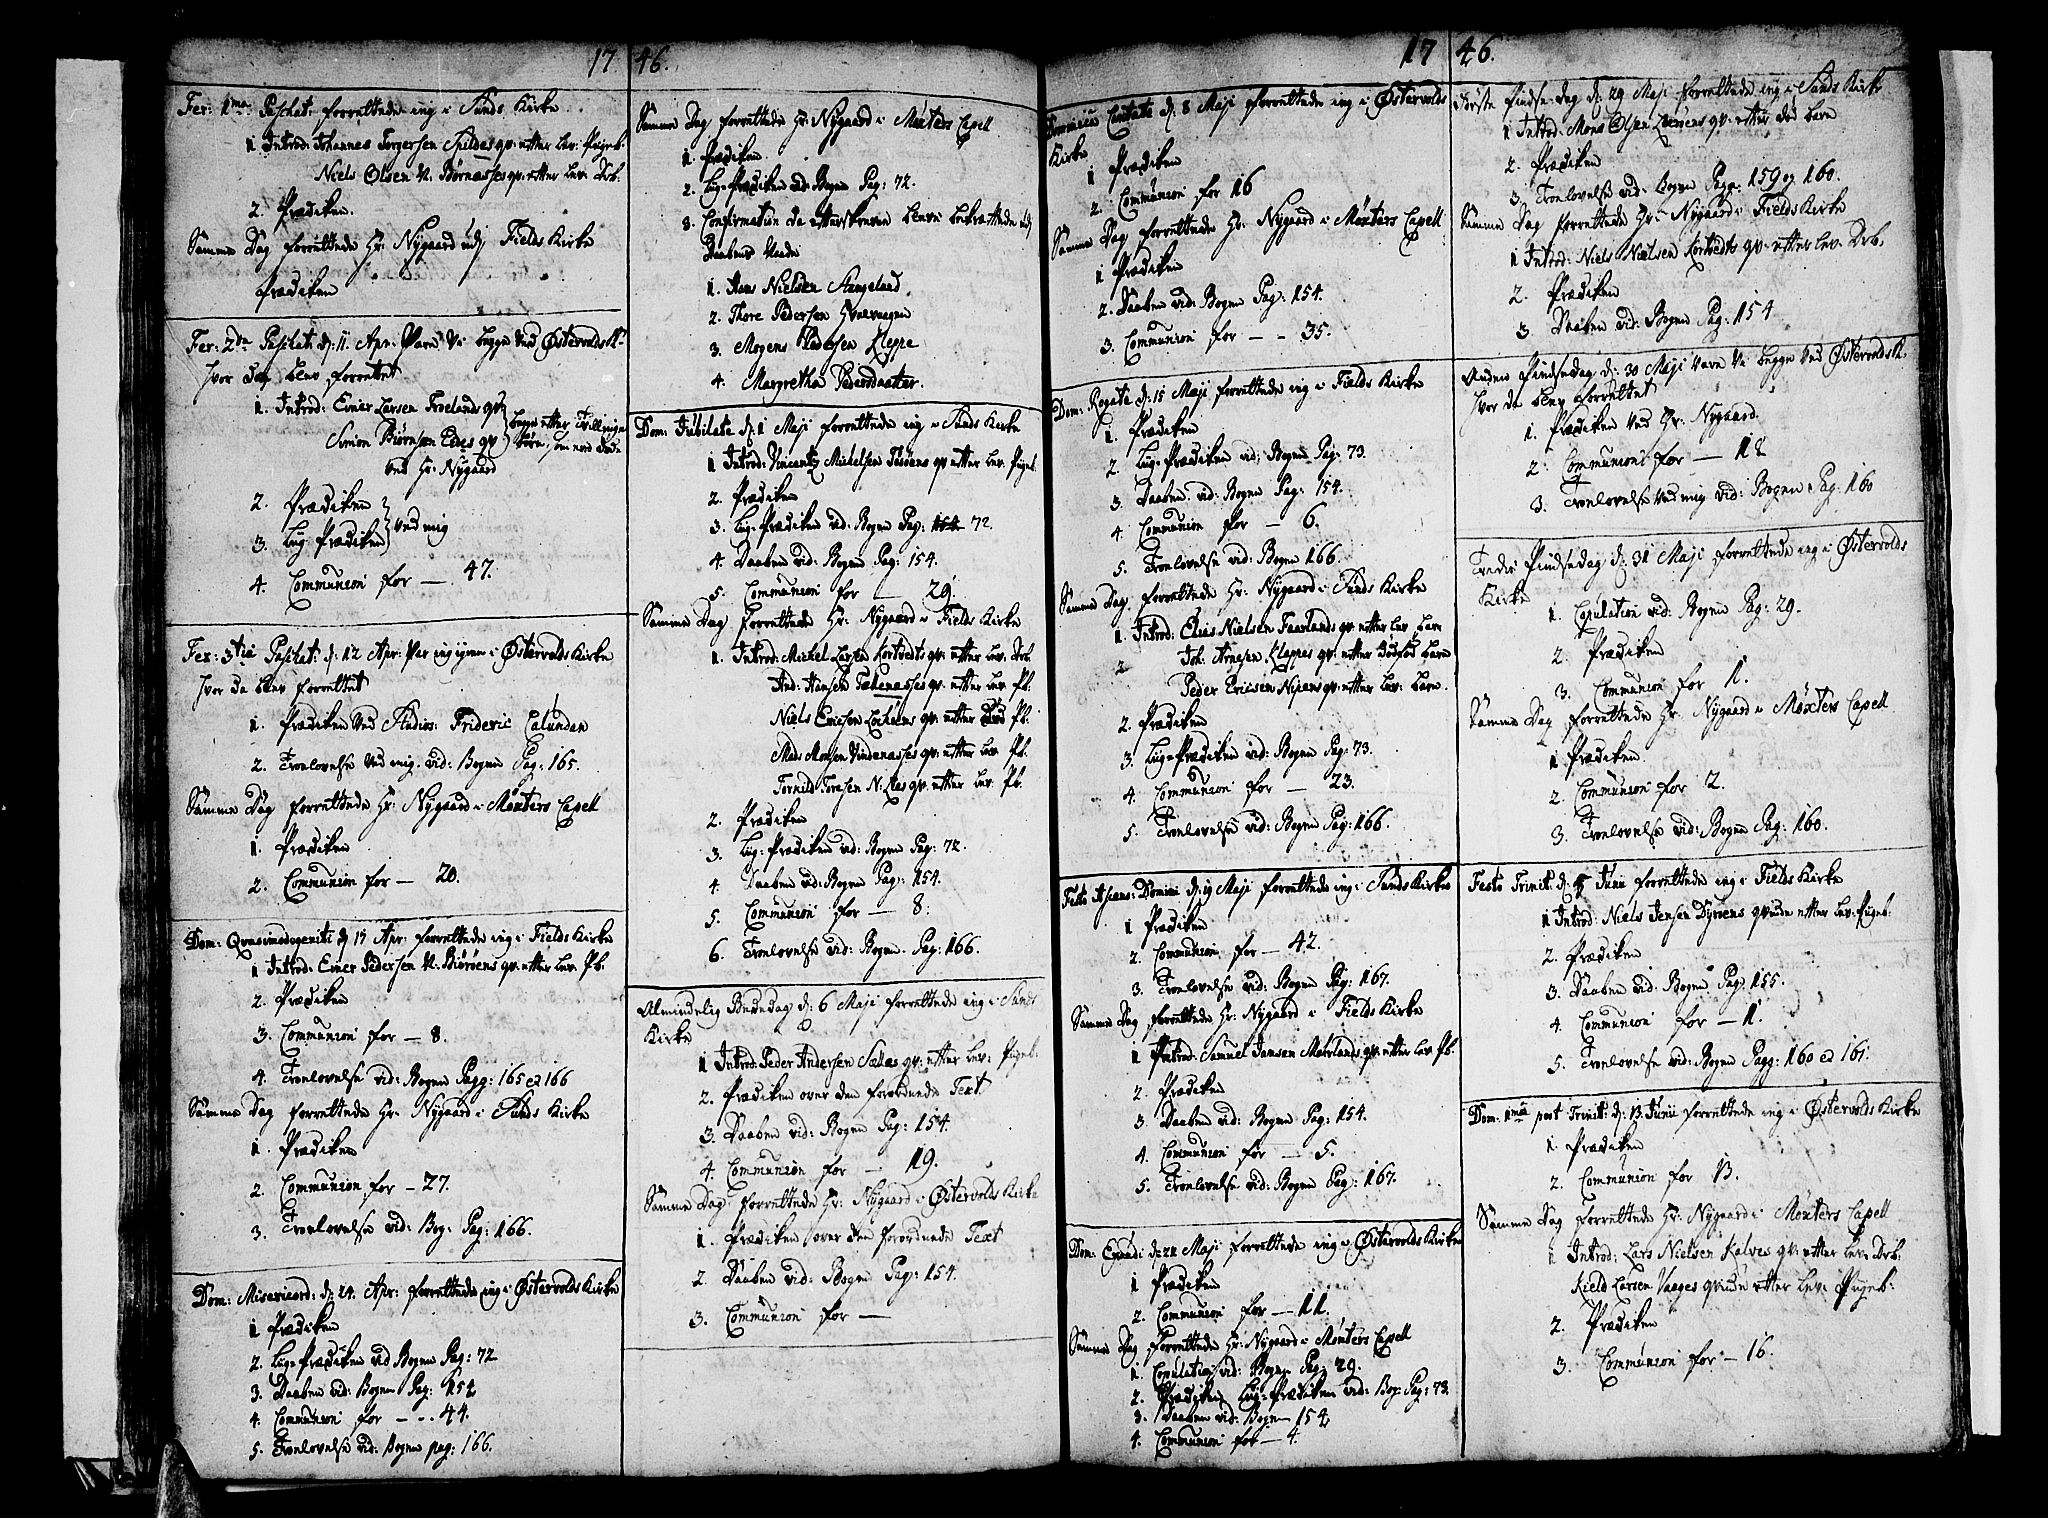 17 46.
Fer: 1ma Paschat: forrettede ieg i Sunds Kirke
1 Introd: Johannes Torgersen qv: etter lev: Pigeb:
Niels Olsen N. Børnæsses qv: etter lev: Drb.
2. Prædiken.
Samme Dag forrettede Hr: Nygaard udj Fields Kirke
Prædiken
Fer: 2da Paschat: d: 11 Apr: Vare Vi begge ved Østervolds K:
hvor da blev forrettet
1. Introd: Einer Larsen Frøelands qv:
Simon Biørnsen Eides qv
begge etter Tvillinge
børn, som vare døde
ved Hr: Nygaard
2. Prædiken
3. Liig-Prædiken
ved mig
4. Communion for — 47.
Fer: 3tia Paschat: d: 12 Apr: Var ieg igien i Østervolds Kirke
hvor da blev forrettet
1. Prædiken ved Studios: Frideric Calundan
2. Trolovelse ved mig. vid: Bogen Pag: 165.
Samme Dag forrettede Hr: Nygaard i Møxters Capell
1. Prædiken
2. Communion for — 20.
Dom: Qvasimodogeniti d: 17 Apr: forrettede ieg i Fields Kirke
1 Introd: Einer Pedersen N. Biørøens qv: etter lev: Pb.
2. Prædiken
3. Communion for — 8.
4. Trolovelse vid: Bogen Pagg: 165 et 166
Samme Dag forrettede Hr: Nygaard i Sunds Kirke
1. Prædiken
2. Communion for — 27.
3. Trolovelse vid: Bog: Pag: 166.
Dom: Misericord: d: 24. Apr: forrettede ieg i Østervolds Kirke
1 Prædiken
2. Liig-Prædiken vid Bogen Pag: 72
3. Daaben vid: Bogen Pag: 154
4. Communion for - - 44.
5. Trolovelse vid: Bogen pag: 166.
Samme Dag forrettede Hr: Nygaard i Møxters Capell
1. Prædiken
2. Liig-Prædiken vid: Bogen Pag: 72.
3. Confirmation da efterskrevne bleve bekræftede udj
Daabens Naade
1. Hans Nielsen Hangeland
2. Thore Pedersen Hvalvaagen
3. Mogens Pedersen Kleppe
4. Margretha Pedersdaatter.
Dom: Jubilate d: 1 Maji forrettede ieg i Sunds Kirke
1 Introd: Vincentz Mickelsen qv: etter lev: Pigeb.
2. Prædiken
3. Liig-Prædiken vid: Bogen Pag: 72.
4. Daaben vid: Bogen Pag: 154.
5. Communion for — 29.
Samme Dag forrettede Hr: Nygaard i Fields Kirke
1. Introd: Mickel Larsen Kortvedts qv: etter lev: Drb.
And: Hansen qv: etter lev: Pb.
Niels Ericsen qv: etter Pb.
Mads Monsen Vindenæsses qv: etter lev: Pb.
qv: etter lev: Pb.
2. Prædiken
3. Liig-Prædiken vid: Bogen Pag: 72.
4. Daaben vid: Bogen Pag: 154.
5. Communion for — 8.
6. Trolovelse vid: Bogen Pag: 166.
Almindelig Bededag d: 6 Maji forrettede ieg i Sunds
Kirke
1 Introd: Peder Andersen qv: etter lev: Pigeb.
2. Prædiken over den forordnede Text
3. Daaben vid: Bogen Pag: 154.
4. Communion for — 19.
Samme Dag forrettede Hr: Nygaard i Østervolds Kirke
1. Prædiken over den forordnede Text
2. Daaben vid: Bogen Pag: 154.
3. Communion for —
17 46.
Dominica Cantate d: 8 Maji forrettede ieg i Østervolds
Kirke
1 Prædiken
2. Communion for 16
Samme Dag forrettede Hr: Nygaard i Møxters Capell
1 Prædiken
2. Daaben vid: Bogen Pag: 154.
3. Communion for - - 35.
Dom: Rogate d: 15 Maji forrettede ieg i Fields Kirke
1. Prædiken
2. Liig-Prædiken vid: Bogen Pag: 73.
3. Daaben vid: Bogen Pag: 154.
4. Communion for — 6.
5. Trolovelse vid: Bogen 166.
Samme Dag forrettede Hr: Nygaard i Sunds Kirke
1. Introd: Elias Nielsen qv: etter lev: barn
Joh: Arnesen Kleppes qv: etter Dødfød barn
Peder Ericsen qv: etter lev: barn.
2. Prædiken
3. Liig-Prædiken vid: Bogen Pag: 73.
4. Communion for — 23.
5. Trolovelse vid: Bogen Pag: 166.
Festo Ascens: Domini d: 19 Maji forrettede ieg i Sunds Kirke
1 Prædiken
2. Communion for — 42.
3. Trolovelse vid: Bogen Pag: 167.
Samme Dag forrettede Hr: Nygaard i Fields Kirke
1 Introd: Samuel Jansen qv: etter lev Pb.
2. Prædiken
3. Daaben vid: Bogen Pag: 154.
4. Communion for — 5.
5. Trolovelse vid: Bogen Pag: 167.
Dom: Exaudi d: 22 Maji forrettede ieg i Østervolds Kirke
1 Prædiken
2. Communion for — 11.
Samme Dag forrettede Hr: Nygaard i Møxters Capell
1. Copulation vid: Bogen Pag: 29.
2. Prædiken, Liig-Prædiken vid: Bog: Pag: 73.
3. Daaben vid: Bogen 154
4. Communion for — 4.
Første Pindse-dag d: 29 Maji forrettede ieg i Sunds Kirke
1 Introd: Mons Olsen qv: etter død barn
2. Prædiken
3. Trolovelse vid: Bogen Pagg: 159 og 160.
Samme Dag forrettede Hr: Nygaard i Fields Kirke
1 Introd: Niels Nielsen Kortvedts qv: etter lev: Drb.
2. Prædiken
3. Daaben vid: Bogen Pag: 154
Anden Pindsedag d: 30 Maji vare Vi begge ved Østervolds K.
hvor da blev forrettet
1. Prædiken ved Hr: Nygaard.
2. Communion for — 18
3. Trolovelse ved mig vid: Bogen Pag: 160
Tredie Pindsedag d: 31 Maji forrettede ieg i Østervolds
Kirke
1. Copulation vid: Bogen Pag: 29.
2. Prædiken
3. Communion for 1.
Samme Dag forrettede Hr: Nygaard i Møxters Capell
1 Prædiken
2. Communion for 2.
3. Trolovelse vid: Bogen Pag: 160.
Festo Trinit: d: 5 Junii forrettede ieg i Fields Kirke
1 Introd: Niels Jensen Dyrøens qvinde etter lev: Pigeb:
2. Prædiken
3. Daaben vid: Bogen Pag: 155.
4. Communion for — 1.
5. Trolovelse vid: Bogen Pagg: 160 et 161.
Dom: 1ma post Trinit: d: 13 Junii forrettede ieg i Østervolds Kirke
1. Prædiken
2. Communion for 13.
Samme Dag forrettede Hr: Nygaard i Møxters Capell
1 Introd: Lars Nielsen Kalves qv: etter lev: Drb.
Kield Larsen Vaages qvinde etter lev: Pigeb:
2. Prædiken
3. Communion for — 16.